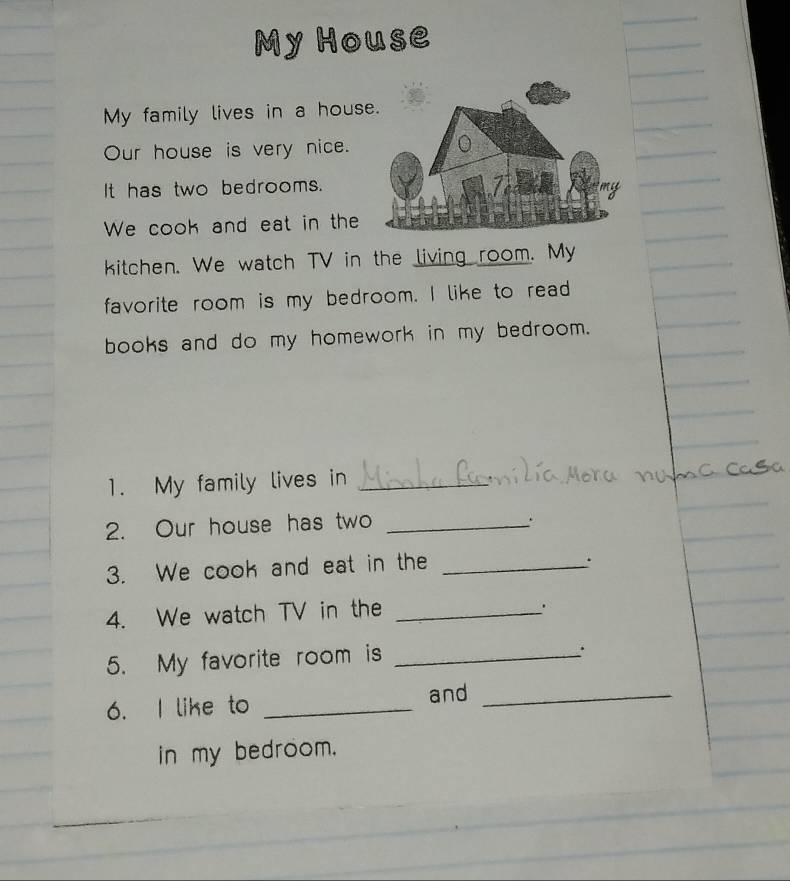 My House
My family lives in a house.
Our house is very nice.
It has two bedrooms.
We cook and eat in the
kitchen. We watch TV in the living room. My
favorite room is my bedroom. I like to read
books and do my homework in my bedroom.
1. My family lives in Minha família Mora numa casa
2. Our house has two ____________.
3. We cook and eat in the ____________.
4. We watch TV in the ____________.
5. My favorite room is ____________.
6. I like to ____________ and ____________
in my bedroom.